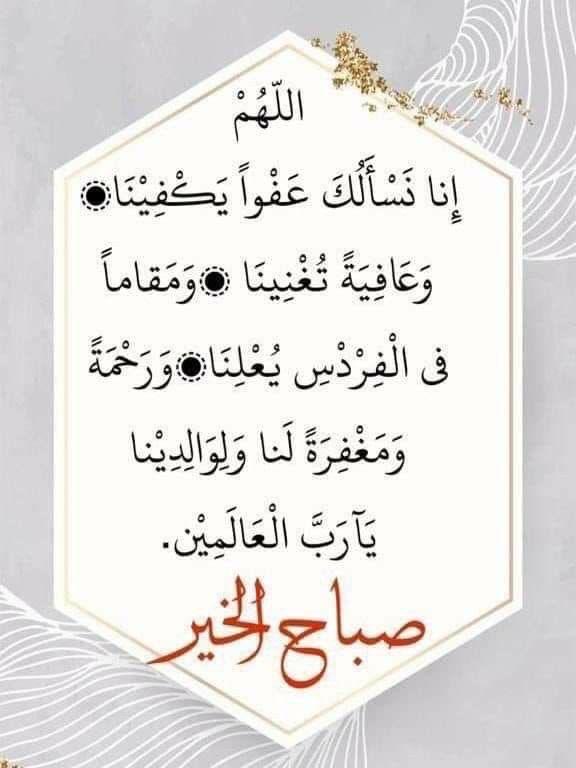 اللّهُمْ
إِنا نَسْأَلُكَ عَفْواً يَكْفِيْنَا
وَعَافِيَةً تُغْنِينَا وَمَقاماً
فى الْفِرْدْسِ يُعْلِنَا وَرَحْمَةً
وَمَغْفِرَةً لَنا وَلِوَالِدِيْنا
يَآرَبَّ الْعَالَمِيْن.
صباح الخير